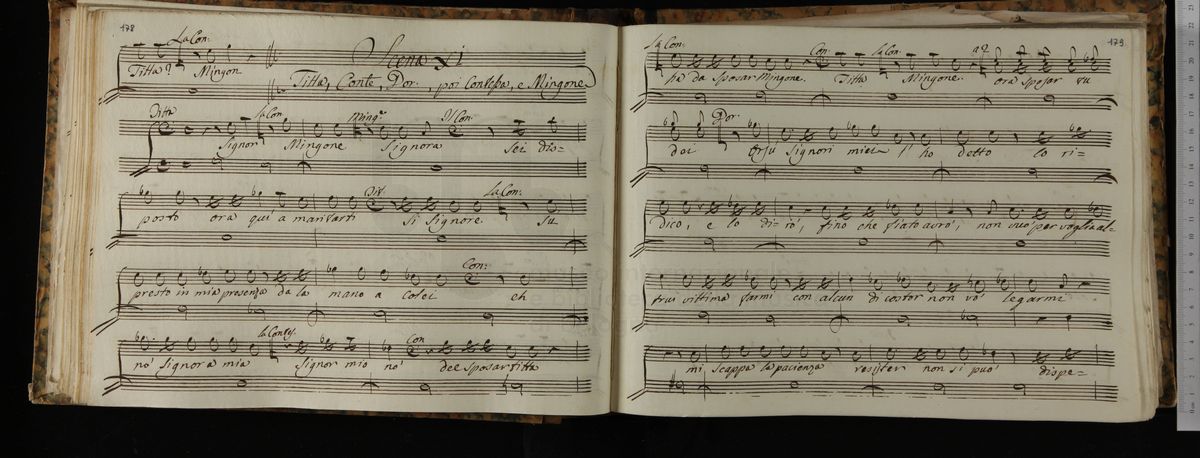 178
La Con:
Titta? Mingon
Scena XI
Titta, Conte, Dor., poi Contessa, e Mingone
Titta La Con Ming.e Il Con:
Signor Mingone Signora Sei dis=
Tit. La Con:
posto ora quì a maritarti Si Signore. Su
Con:
presto in mia presenza da la mano a colei eh
la Contes. Con
nò signora mia signor mio nò dee sposar titta
179
La Con: Con: la Con: a2
hà da sposar Mingone. Titta Mingone. ora sposar tu
Dor:
dei Orsù signori miei l'hò detto lo ri=
dico, e lo dirò, fino che fiato avrò, non vuò per voglia al=
trui vittima farmi con alcun di costor non vò legarmi
mi scappa la pacienza resister non si può dispe=